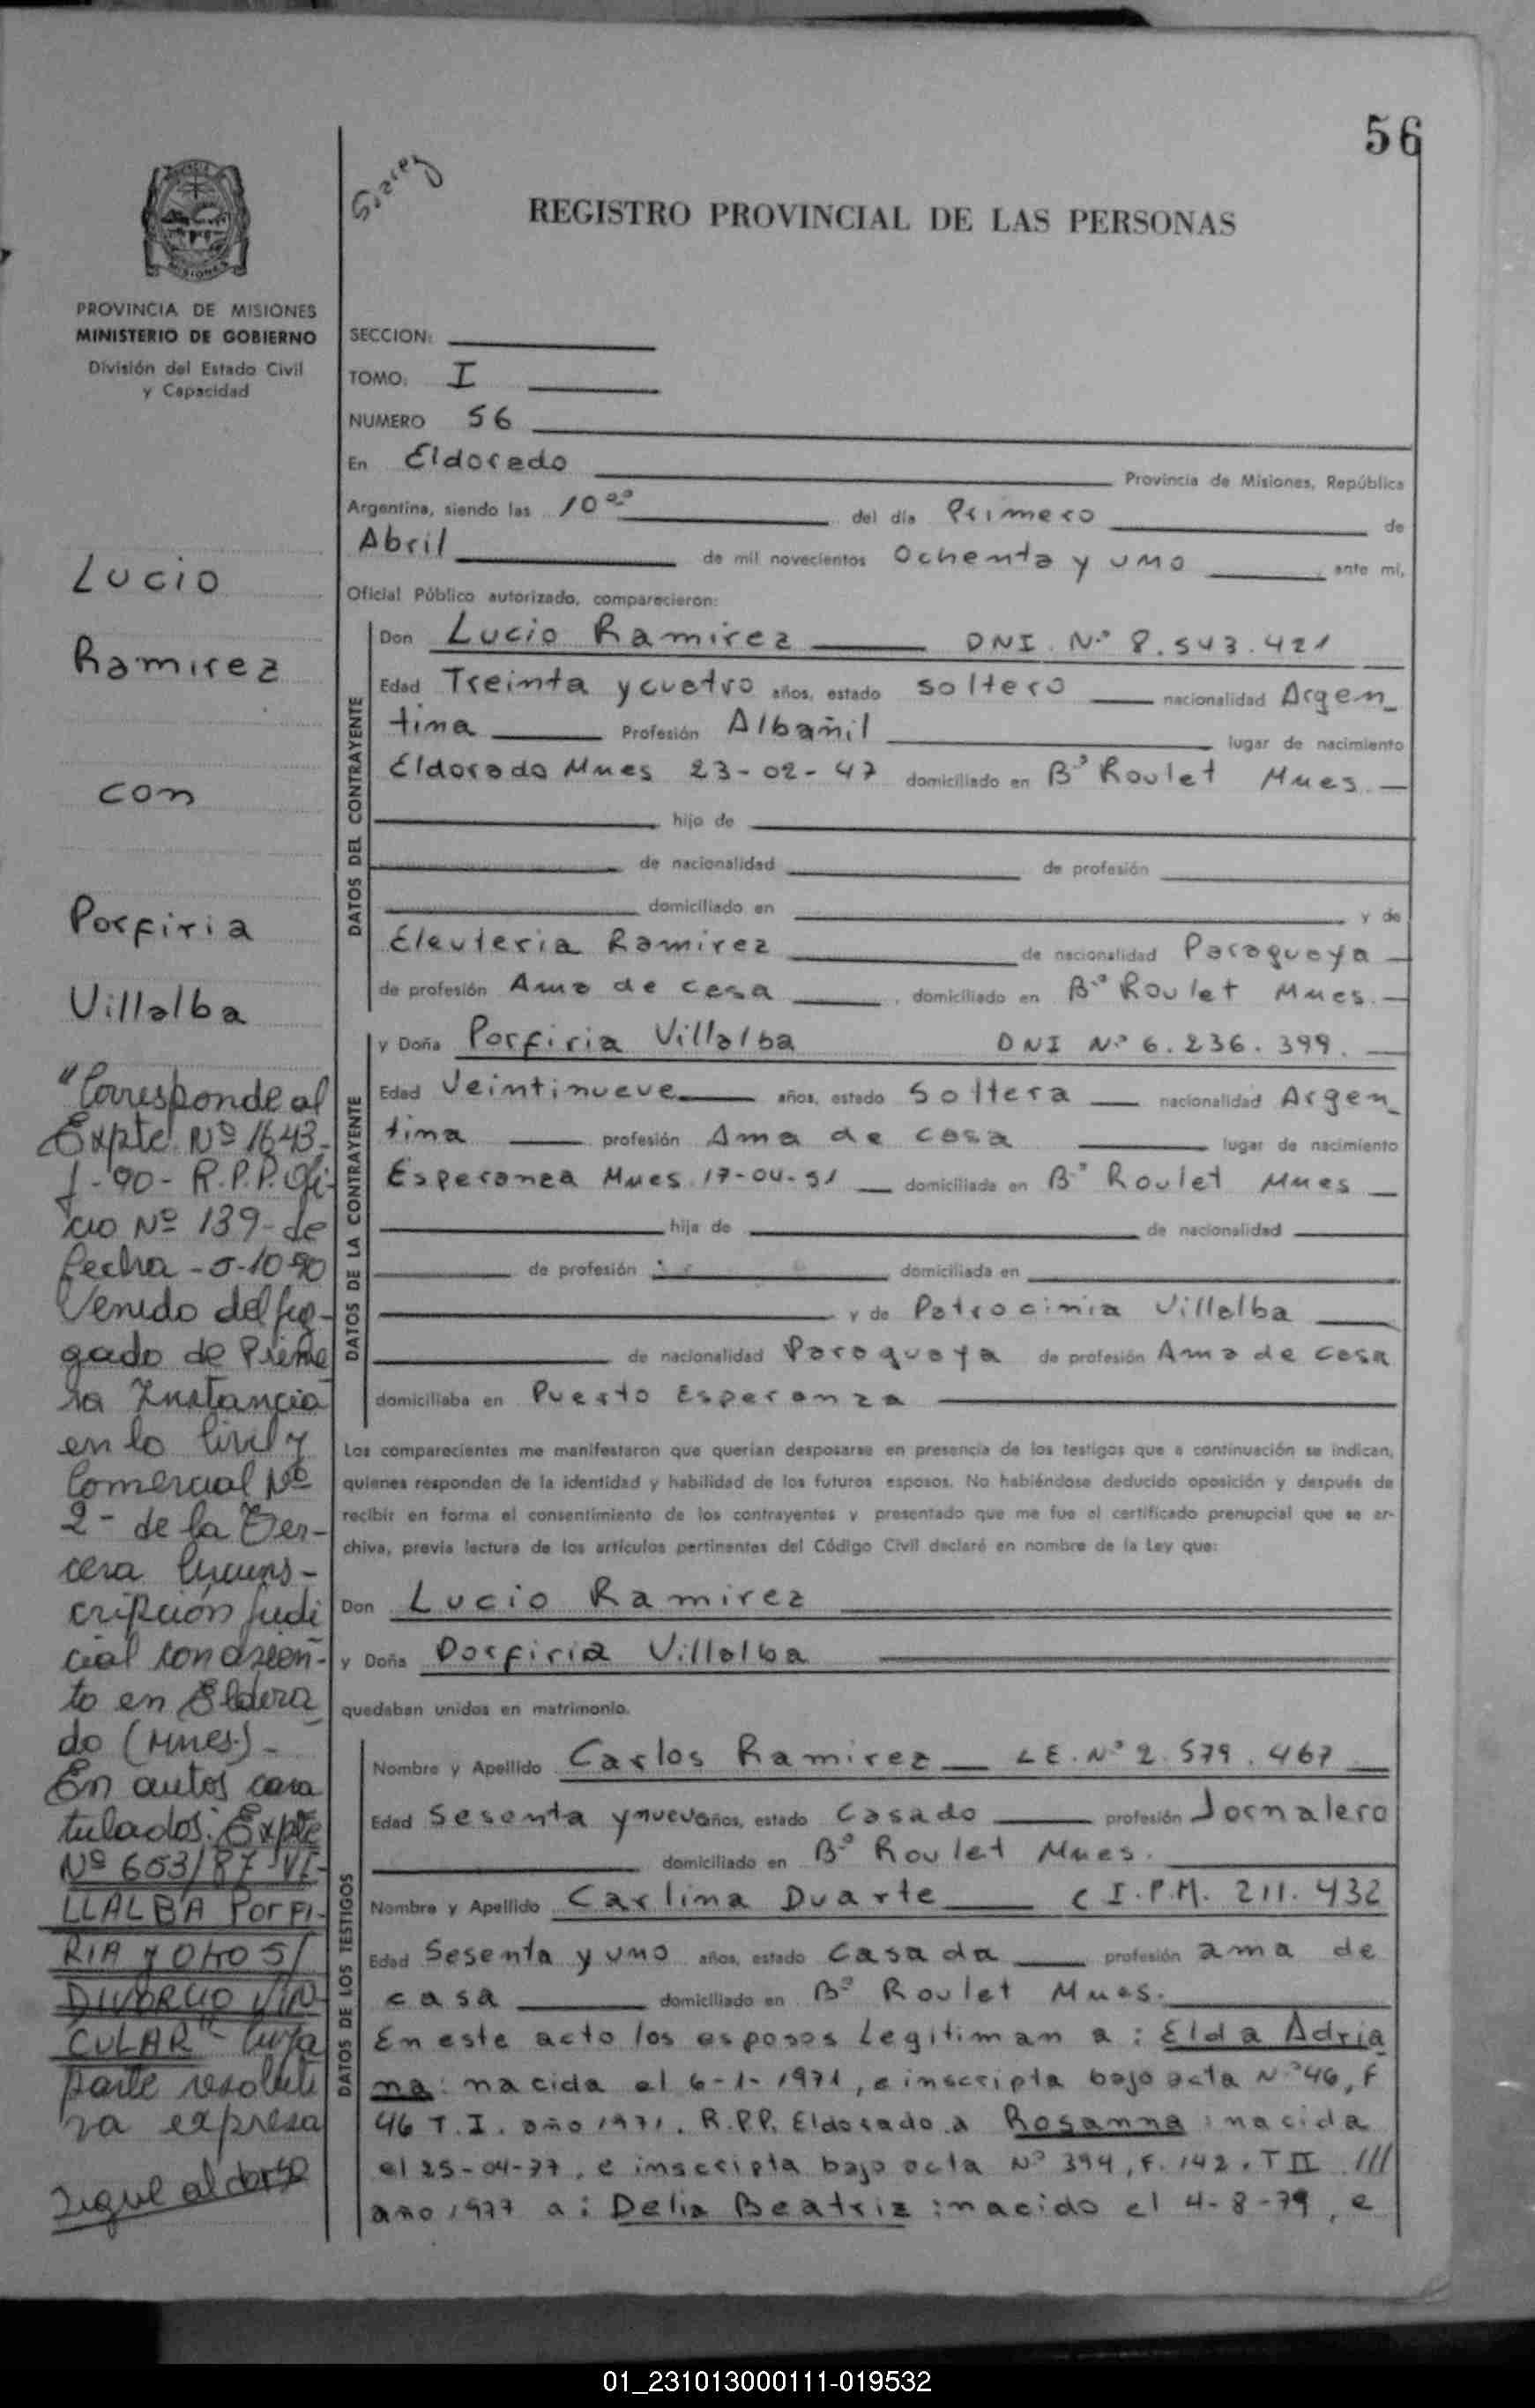 56
REGISTRO PROVINCIAL DE LAS PERSONAS
MISIONES
PROVINCIA DE MISIONES
MINISTERIO DE GOBIERNO
División del Estado Civil
y Capacidad
Lucio
Ramirez
con
Porfiria
Villalba
"Corresponde al
Expte. Nº 1643-
J-90- R.P.P. Ofi-
cio Nº 139- de
fecha -5-10-90
Venido del Juz-
gado de Prime
ra Instancia
en lo Civil y
Comercial Nº
2- de la Ter-
cera Circuns-
cripción Judi
cial con asien-
to en Eldora
do (Mnes)-
En autos cara
tulados: Expte
Nº 653/87-VI-
LLALBA PorFI-
RIA y Otro S/
DIVORCIO VIN
CULAR" Cuya
parte resoluti
va expresa
Sigue al dorso
SECCION:
TOMO: I
NUMERO 56
En Eldorado Provincia de Misiones, República
Argentina, siendo las 10⁰⁰ del día Primero de
Abril de mil novecientos Ochenta y uno ante mí,
Oficial Público autorizado, comparecieron:
DATOS DEL CONTRAYENTE
Don Lucio Ramirez DNI. Nº 8.543.421
Edad Treinta y cuatro años, estado soltero nacionalidad Argen_
tina Profesión Albañil lugar de nacimiento
Eldorado Mnes 23-02-47 domiciliado en Bº Roulet Mnes.
hijo de
de nacionalidad de profesión
domiciliado en y de
Eleuteria Ramirez de nacionalidad Paraguaya
de profesión Ama de casa, domiciliado en Bº Roulet Mnes.
DATOS DE LA CONTRAYENTE
y Doña Porfiria Villalba DNI Nº 6.236.399.
Edad Veintinueve años, estado Soltera nacionalidad Argen_
tina profesión Ama de casa lugar de nacimiento
Esperanza Mnes. 17-04-51 domiciliada en Bº Roulet Mnes
hija de de nacionalidad
de profesión domiciliada en
y de Patrocinia Villalba
de nacionalidad Paraguaya de profesión Ama de casa
domiciliaba en Puerto Esperanza
Los comparecientes me manifestaron que querían desposarse en presencia de los testigos que a continuación se indican,
quienes responden de la identidad y habilidad de los futuros esposos. No habiéndose deducido oposición y después de
recibir en forma el consentimiento de los contrayentes y presentado que me fue el certificado prenupcial que se ar-
chiva, previa lectura de los artículos pertinentes del Código Civil declaré en nombre de la Ley que:
Don Lucio Ramirez
y Doña Porfiria Villalba
quedaban unidos en matrimonio.
DATOS DE LOS TESTIGOS
Nombre y Apellido Carlos Ramirez LE. Nº 2.579.467
Edad Sesenta y nueve años, estado Casado profesión Jornalero
domiciliado en Bº Roulet Mnes.
Nombre y Apellido Carlina Duarte C I.P.M. 211.432
Edad Sesenta y uno años, estado Casada profesión ama de
casa domiciliado en Bº Roulet Mnes.
En este acto los esposos Legitiman a: Elda Adria
na: nacida el 6-1-1971, e inscripta bajo acta Nº 46, F
46 T.I. año 1971. R.P.P. Eldorado a Rosanna: nacida
el 25-04-77, e inscripta bajo acta Nº 394, F. 142. T II ///
año 1977 a: Delia Beatriz: nacido el 4-8-79, e
01_231013000111-019532